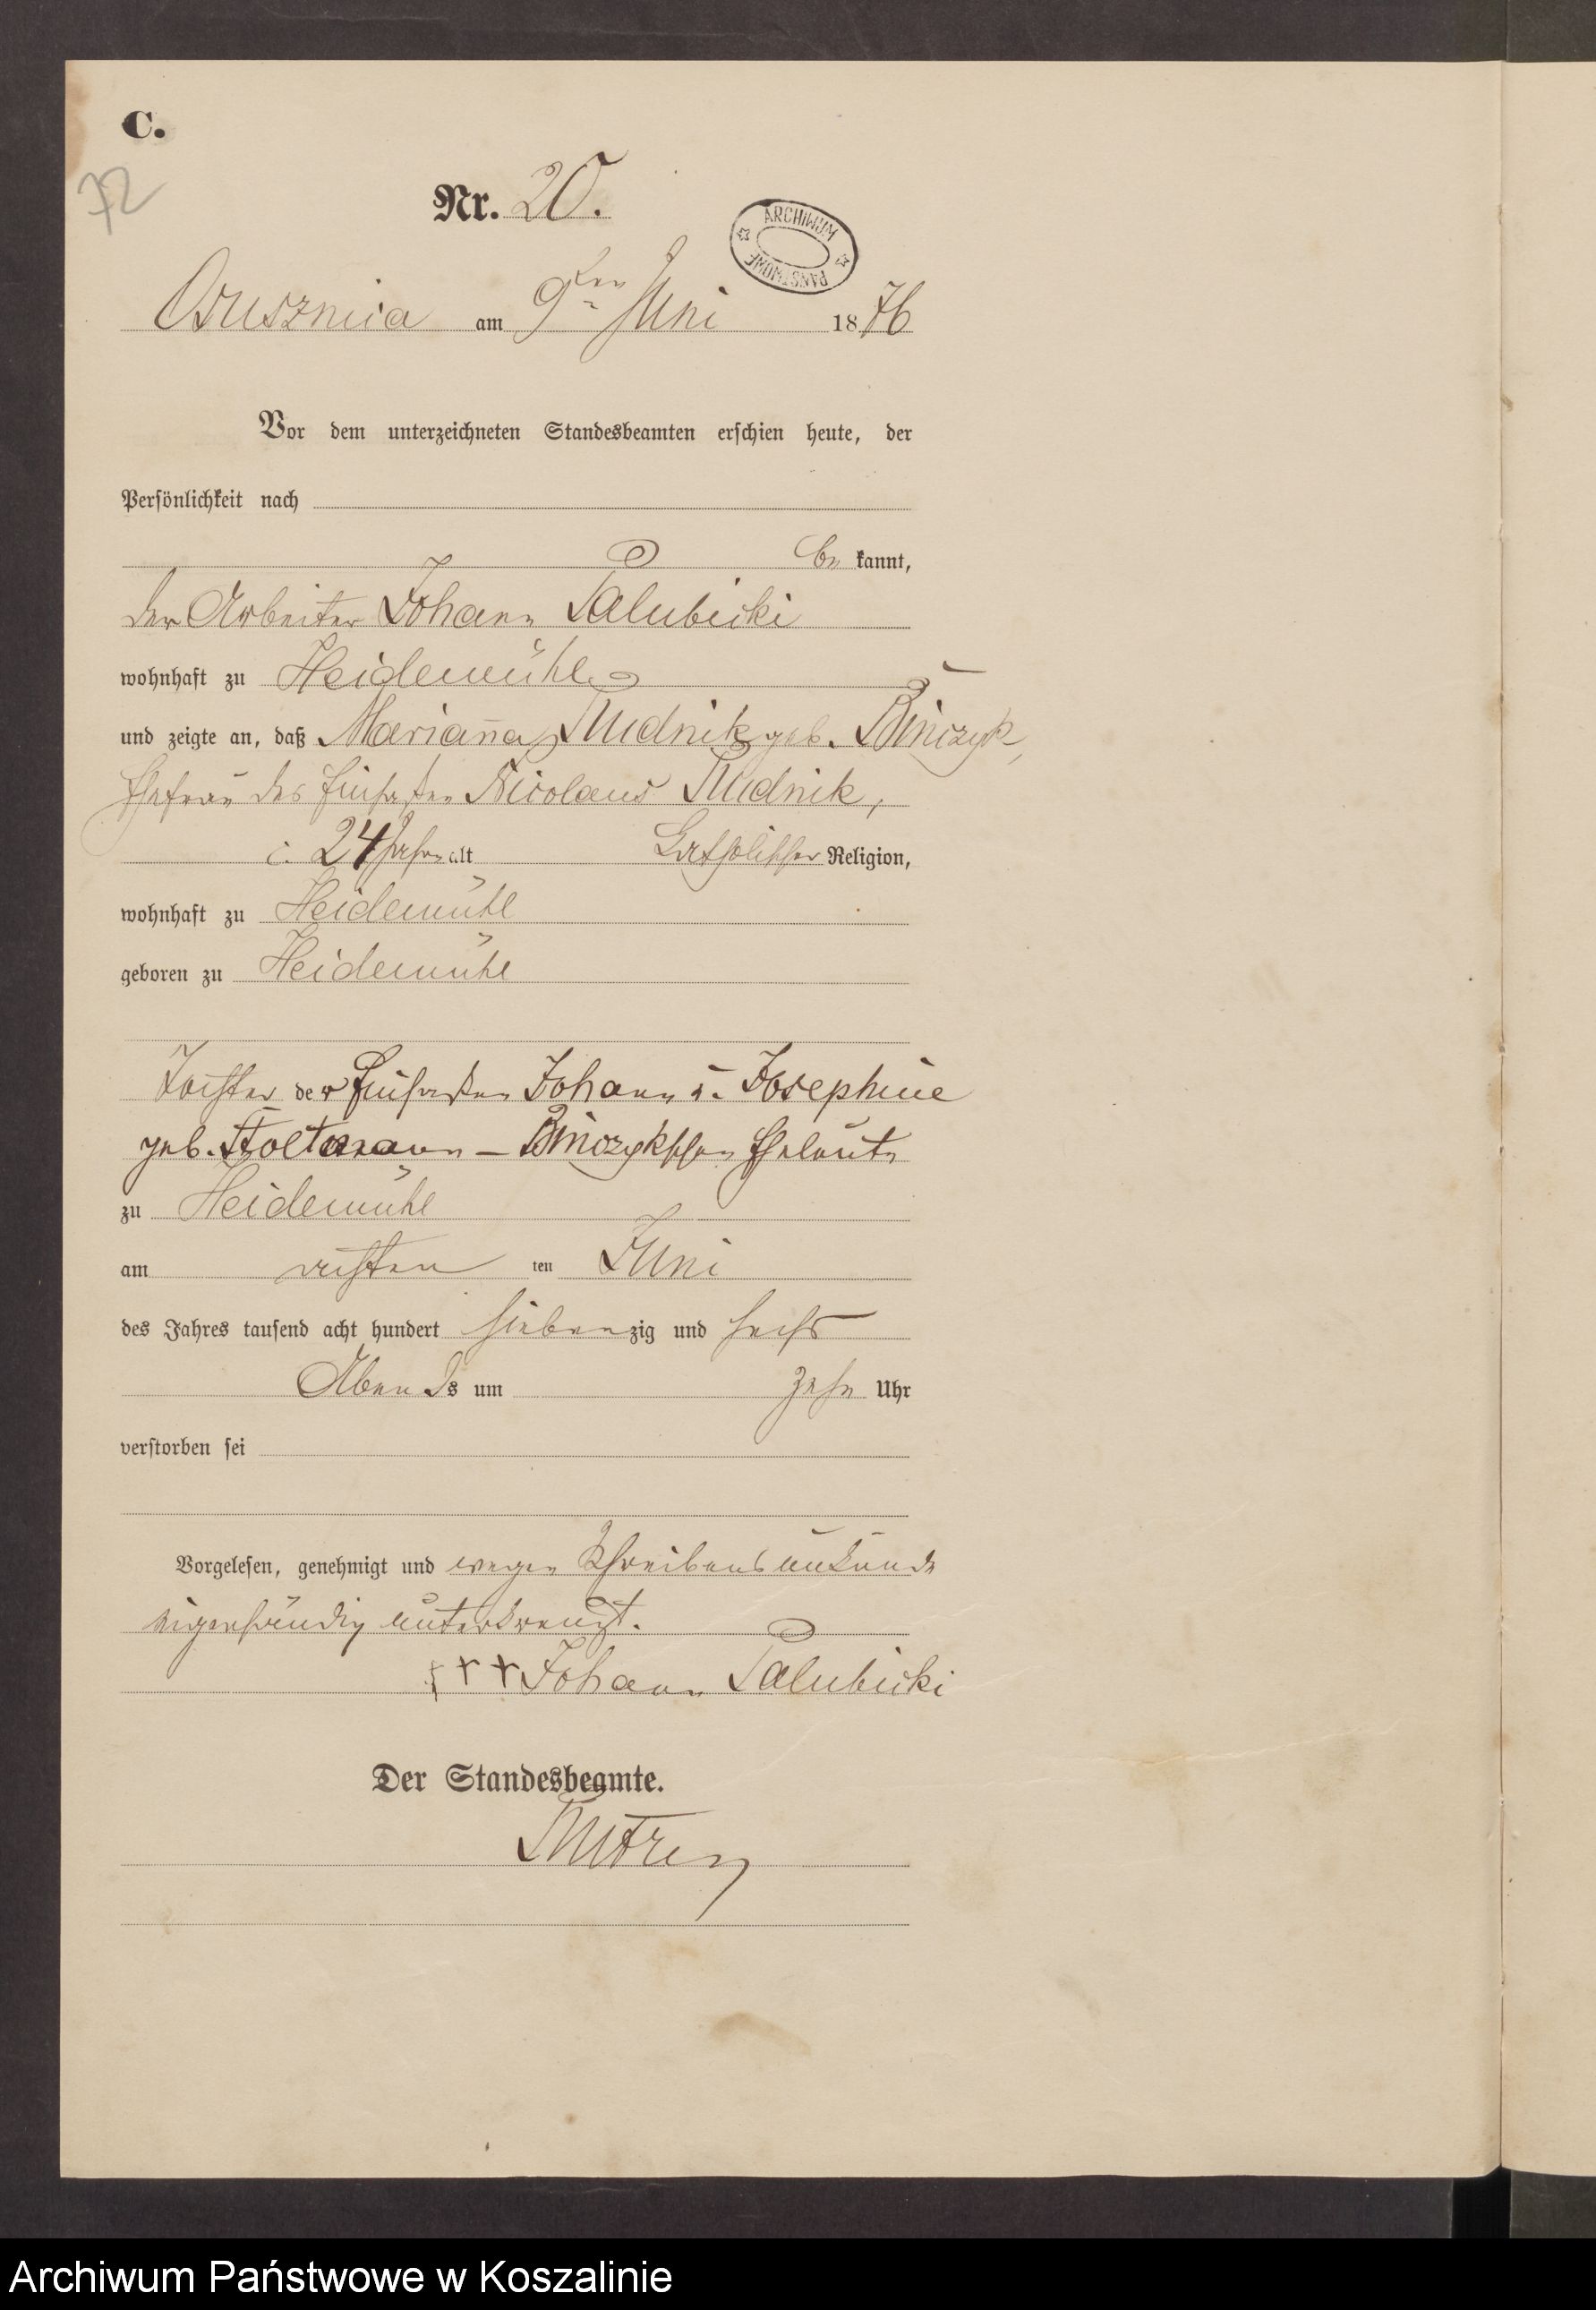 C.
72
Nr. 20.
ARCHIWUM PAŃSTWOWE
Ossusznica am 9ten Juni 1876
Vor dem unterzeichneten Standesbeamten erschien heute, der
Persönlichkeit nach
be kannt,
der Arbeiter Johann Palubicki
wohnhaft zu Heidemühle
und zeigte an, daß Marianna Rudnik geb. Binczyk,
Ehefrau des Einsassen Nicolaus Rudnik,
c. 24 Jahre alt katholischer Religion,
wohnhaft zu Heidemühl
geboren zu Heidemühl
Tochter der Einsassen Johann u. Josephine
geb. Stoltmann – Binczykschen Eheleute
zu Heidemühl
am achten ten Juni
des Jahres tausend acht hundert siebenzig und sechs
Abends um zehn Uhr
verstorben sei
Vorgelesen, genehmigt und wegen Schreibensunkunde
eigenhändig unterkreuzt.
+++ Johann Palubicki
Der Standesbeamte.
Archiwum Państwowe w Koszalinie